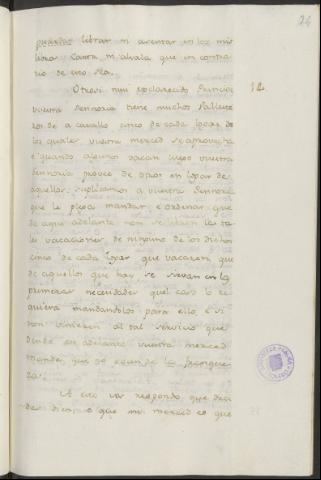 24
puedas librar ni asentar en los mis
libros Carta ni alvala que en contra
rio de esto sea.
12.
Otrosi muy esclarecido Principe
vuestra Sennoria tiene muchos Valleste
ros de a cavallo cinco de cada logar de
los quales vuestra merced se aprovecha
e quando algunos vacan luego vuestra
Sennoria provee de otros en logar de
aquellos: suplicamos a vuestra Sennoria
que le plega mandar e ordenar que
de aqui adelante non se libren las ta
les vacaciones de ninguno de los dichos
cinco de cada logar que vacaren que
de aquellos que hay se sirvan en la
primeras necesidades qual caso lo re
quiera mandandolos para ello, e si
non vinieren al tal servicio que
dende en adelante vuestra merced
mande, que no gocen de la franque
za.
A esto vos respondo que deci
des bien, e que mi merced es que